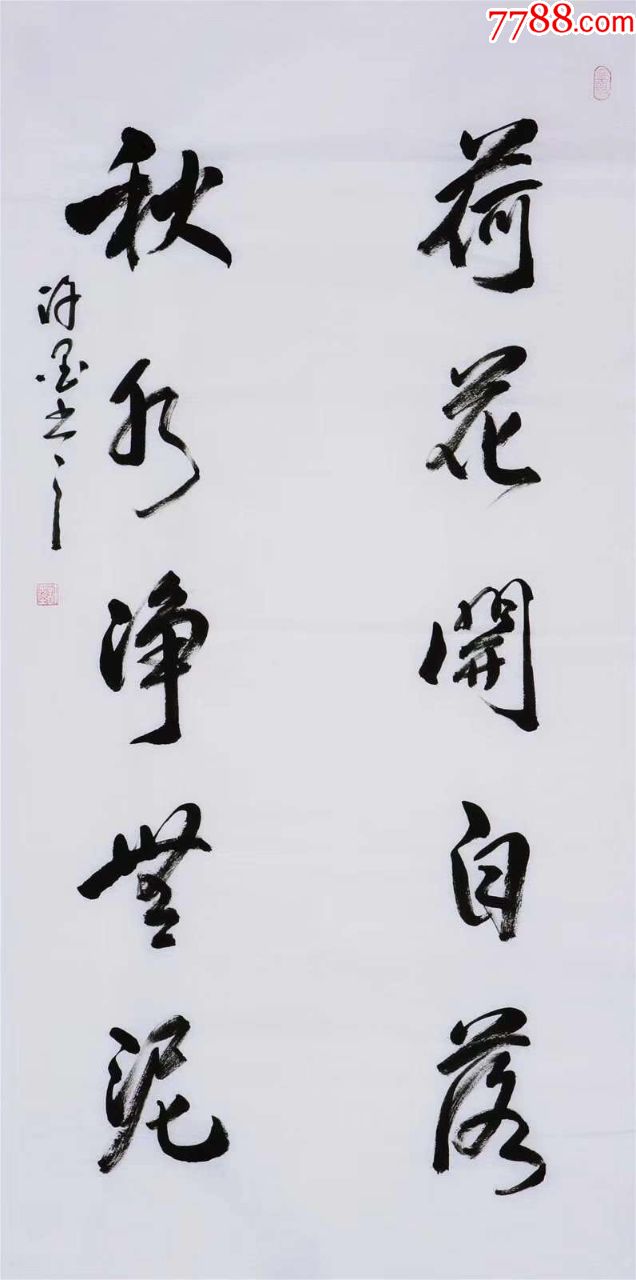 7788.com
荷花開自落
秋水淨無泥
許墨書